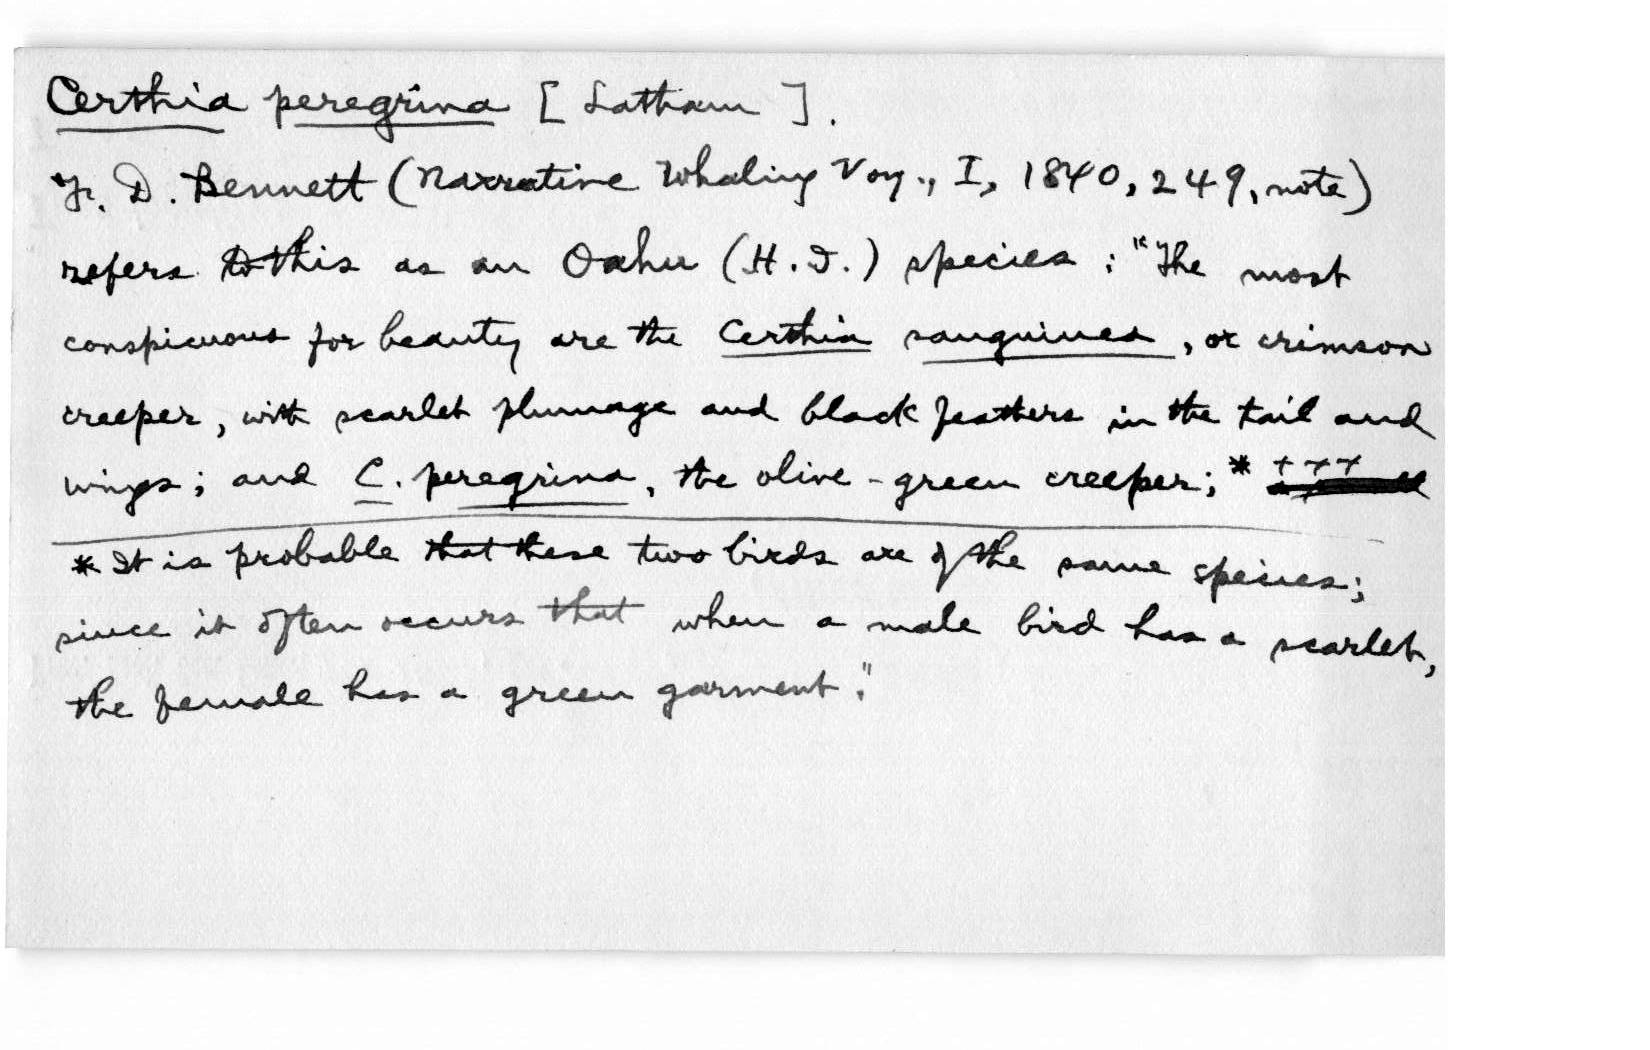 Certhia peregrina [Latham].
F. D. Bennett (Narrative Whaling Voy., I, 1840, 249, note)
refers to this as an Oahu (H.I.) species: "The most
conspicuous for beauty are the Certhia sanguinea, or crimson
creeper, with scarlet plumage and black feathers in the tail and
wings; and C. peregrina, the olive-green creeper;* +++
* It is probable that these two birds are of the same species;
since it often occurs that when a male bird has a scarlet,
the female has a green garment."